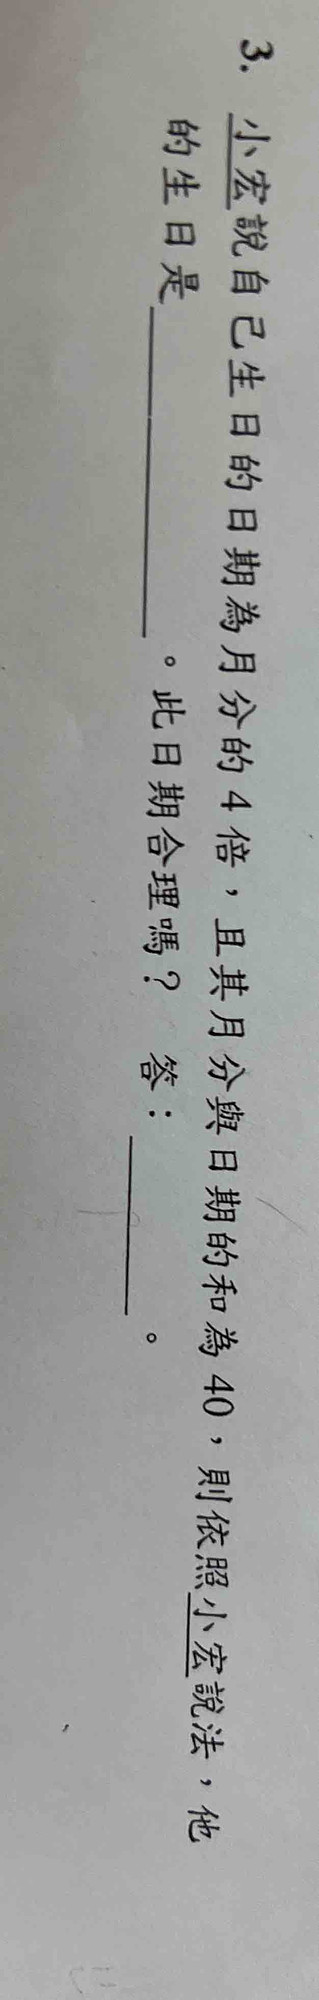 3. 小宏說自己生日的日期為月分的4倍，且其月分與日期的和為40，則依照小宏說法，他
的生日是＿＿＿＿＿＿＿＿。此日期合理嗎？ 答：＿＿＿＿＿。